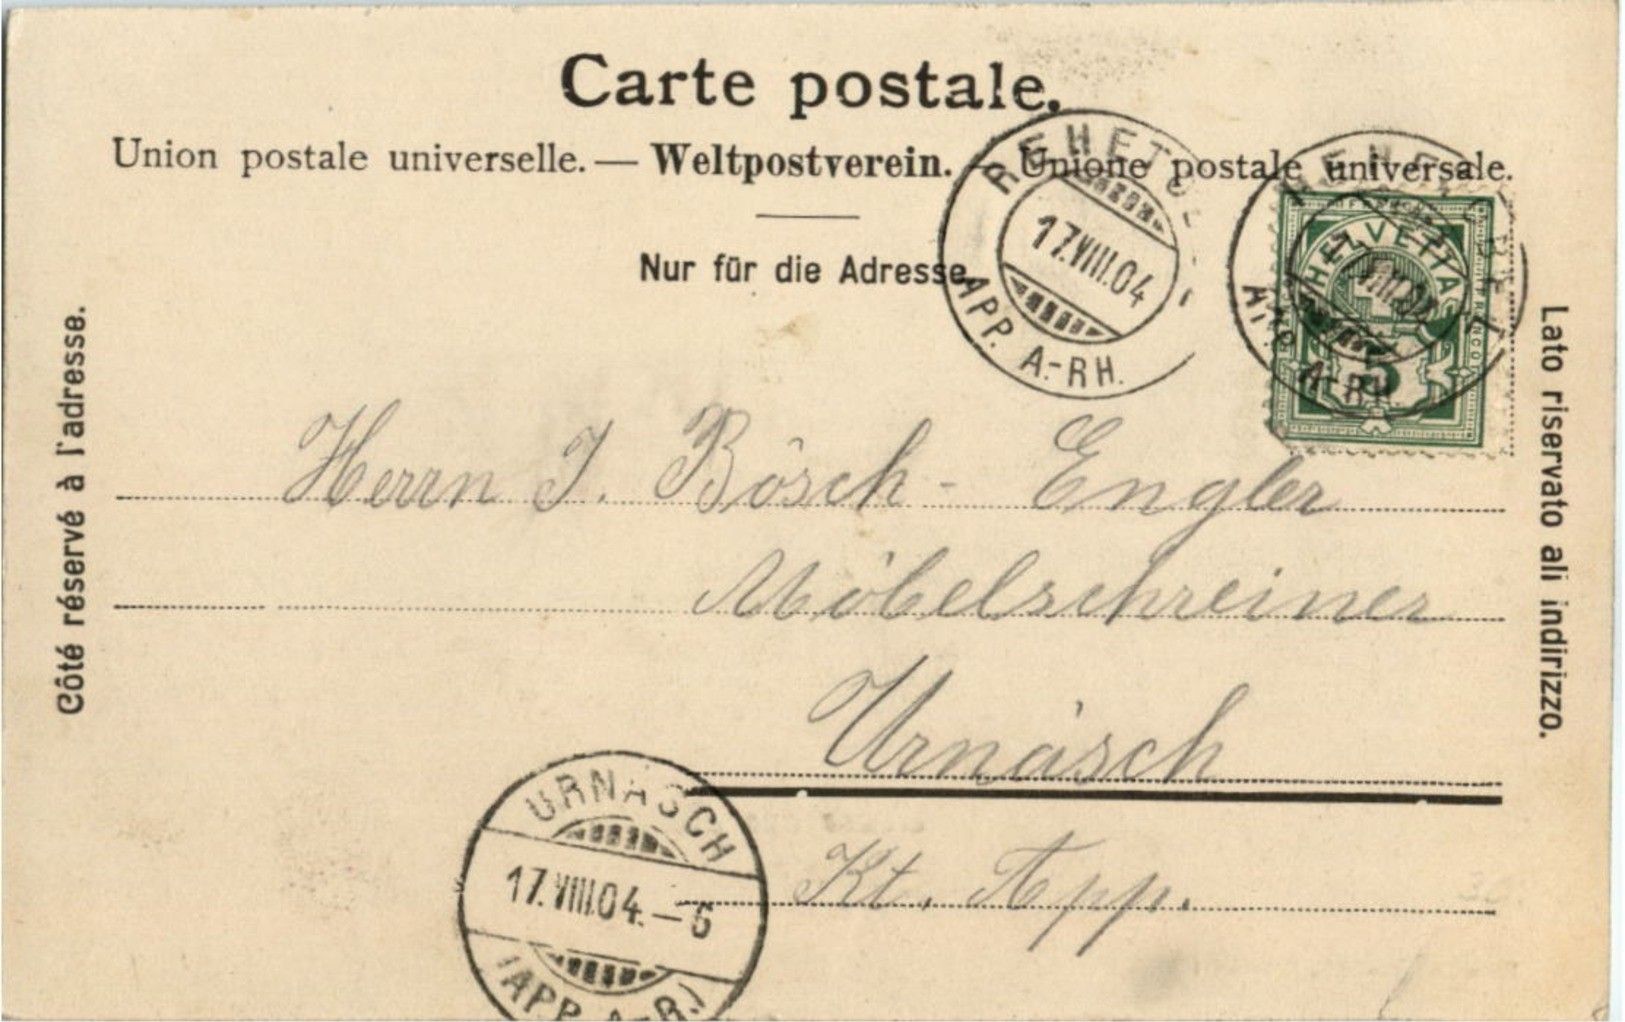 Carte postale.
Union postale universelle. — Weltpostverein. — Unione postale universale.
Nur für die Adresse.
Côté réservé à l'adresse.
Lato riservato ali indirizzo.
REHETOBEL
17.VIII.04
APP. A.-RH.
REHETOBEL
17.VIII.04
APP. A.-RH.
HELVETIA
FRANCO
5
Herrn J. Bösch - Engler
Möbelschreiner
Urnäsch
Kt. App.
URNÄSCH
17.VIII.04.–6
(APP. A.-R.)